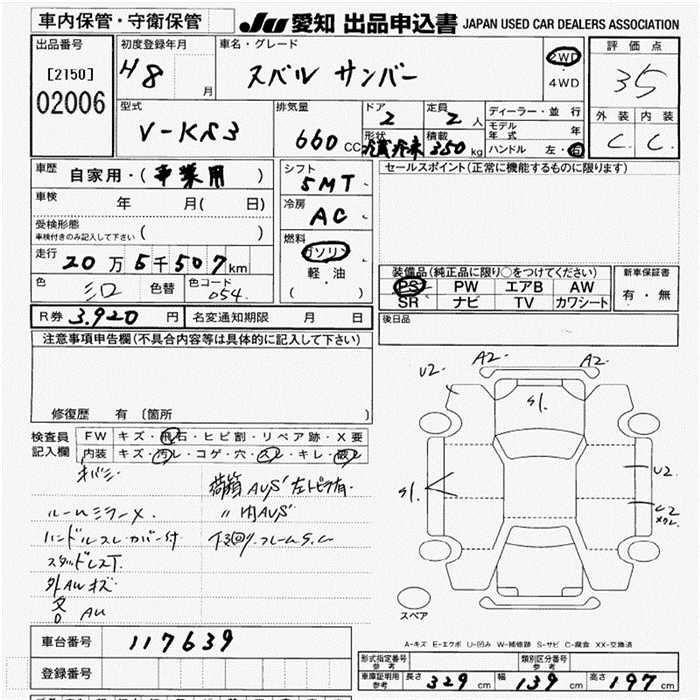 車内保管・守衛保管
JU 愛知 出品申込書 JAPAN USED CAR DEALERS ASSOCIATION
出品番号
[2150]
02006
初度登録年月
H 8 月
車名・グレード
スバル サンバー
2WD
・
4WD
評価点
3.5
外装 内装
C. C.
型式
V-KS3
排気量
660 CC
ドア
2
定員
2 人
形状
積載
350 kg
ディーラー・並 行
モデル年式 年
ハンドル 左・右
車歴
自家用・(事業用)
車検
年 月( 日)
受検形態
車検付きのみ記入して下さい ( )
走行
20万5千507km
色
シロ
色替
色コード
054.
シフト
5MT
冷房
AC
燃料
ガソリン
軽・油
( )
セールスポイント(正常に機能するものに限ります)
装備品(純正品に限り○をつけてください)
PS PW エアB AW
SR ナビ TV カワシート
新車保証書
有・無
R券 3.920 円 名変通知期限 月 日
後日品
注意事項申告欄(不具合内容等は具体的に記入して下さい)
修復歴 有 〔箇所 〕
検査員記入欄
FW キズ・飛石・ヒビ割・リペア跡・X要
内装 キズ・汚レ・コゲ・穴・スレ・キレ・破レ
ルームミラーX.
ハンドルスレ カバー付
スタッドレスT.
外AUキズ
AU
下回り.フレームS.C
U2 A2 A2
S1.
S1.
U2
スペア
A-キズ E-エクボ U-凹み W-補修跡 S-サビ C-腐食 XX-交換済
車台番号 117639
登録番号
形式指定番号 参考
類別区分番号 参考
車庫証明用 参考 長さ 329 cm 幅 139 cm 高さ 197 cm